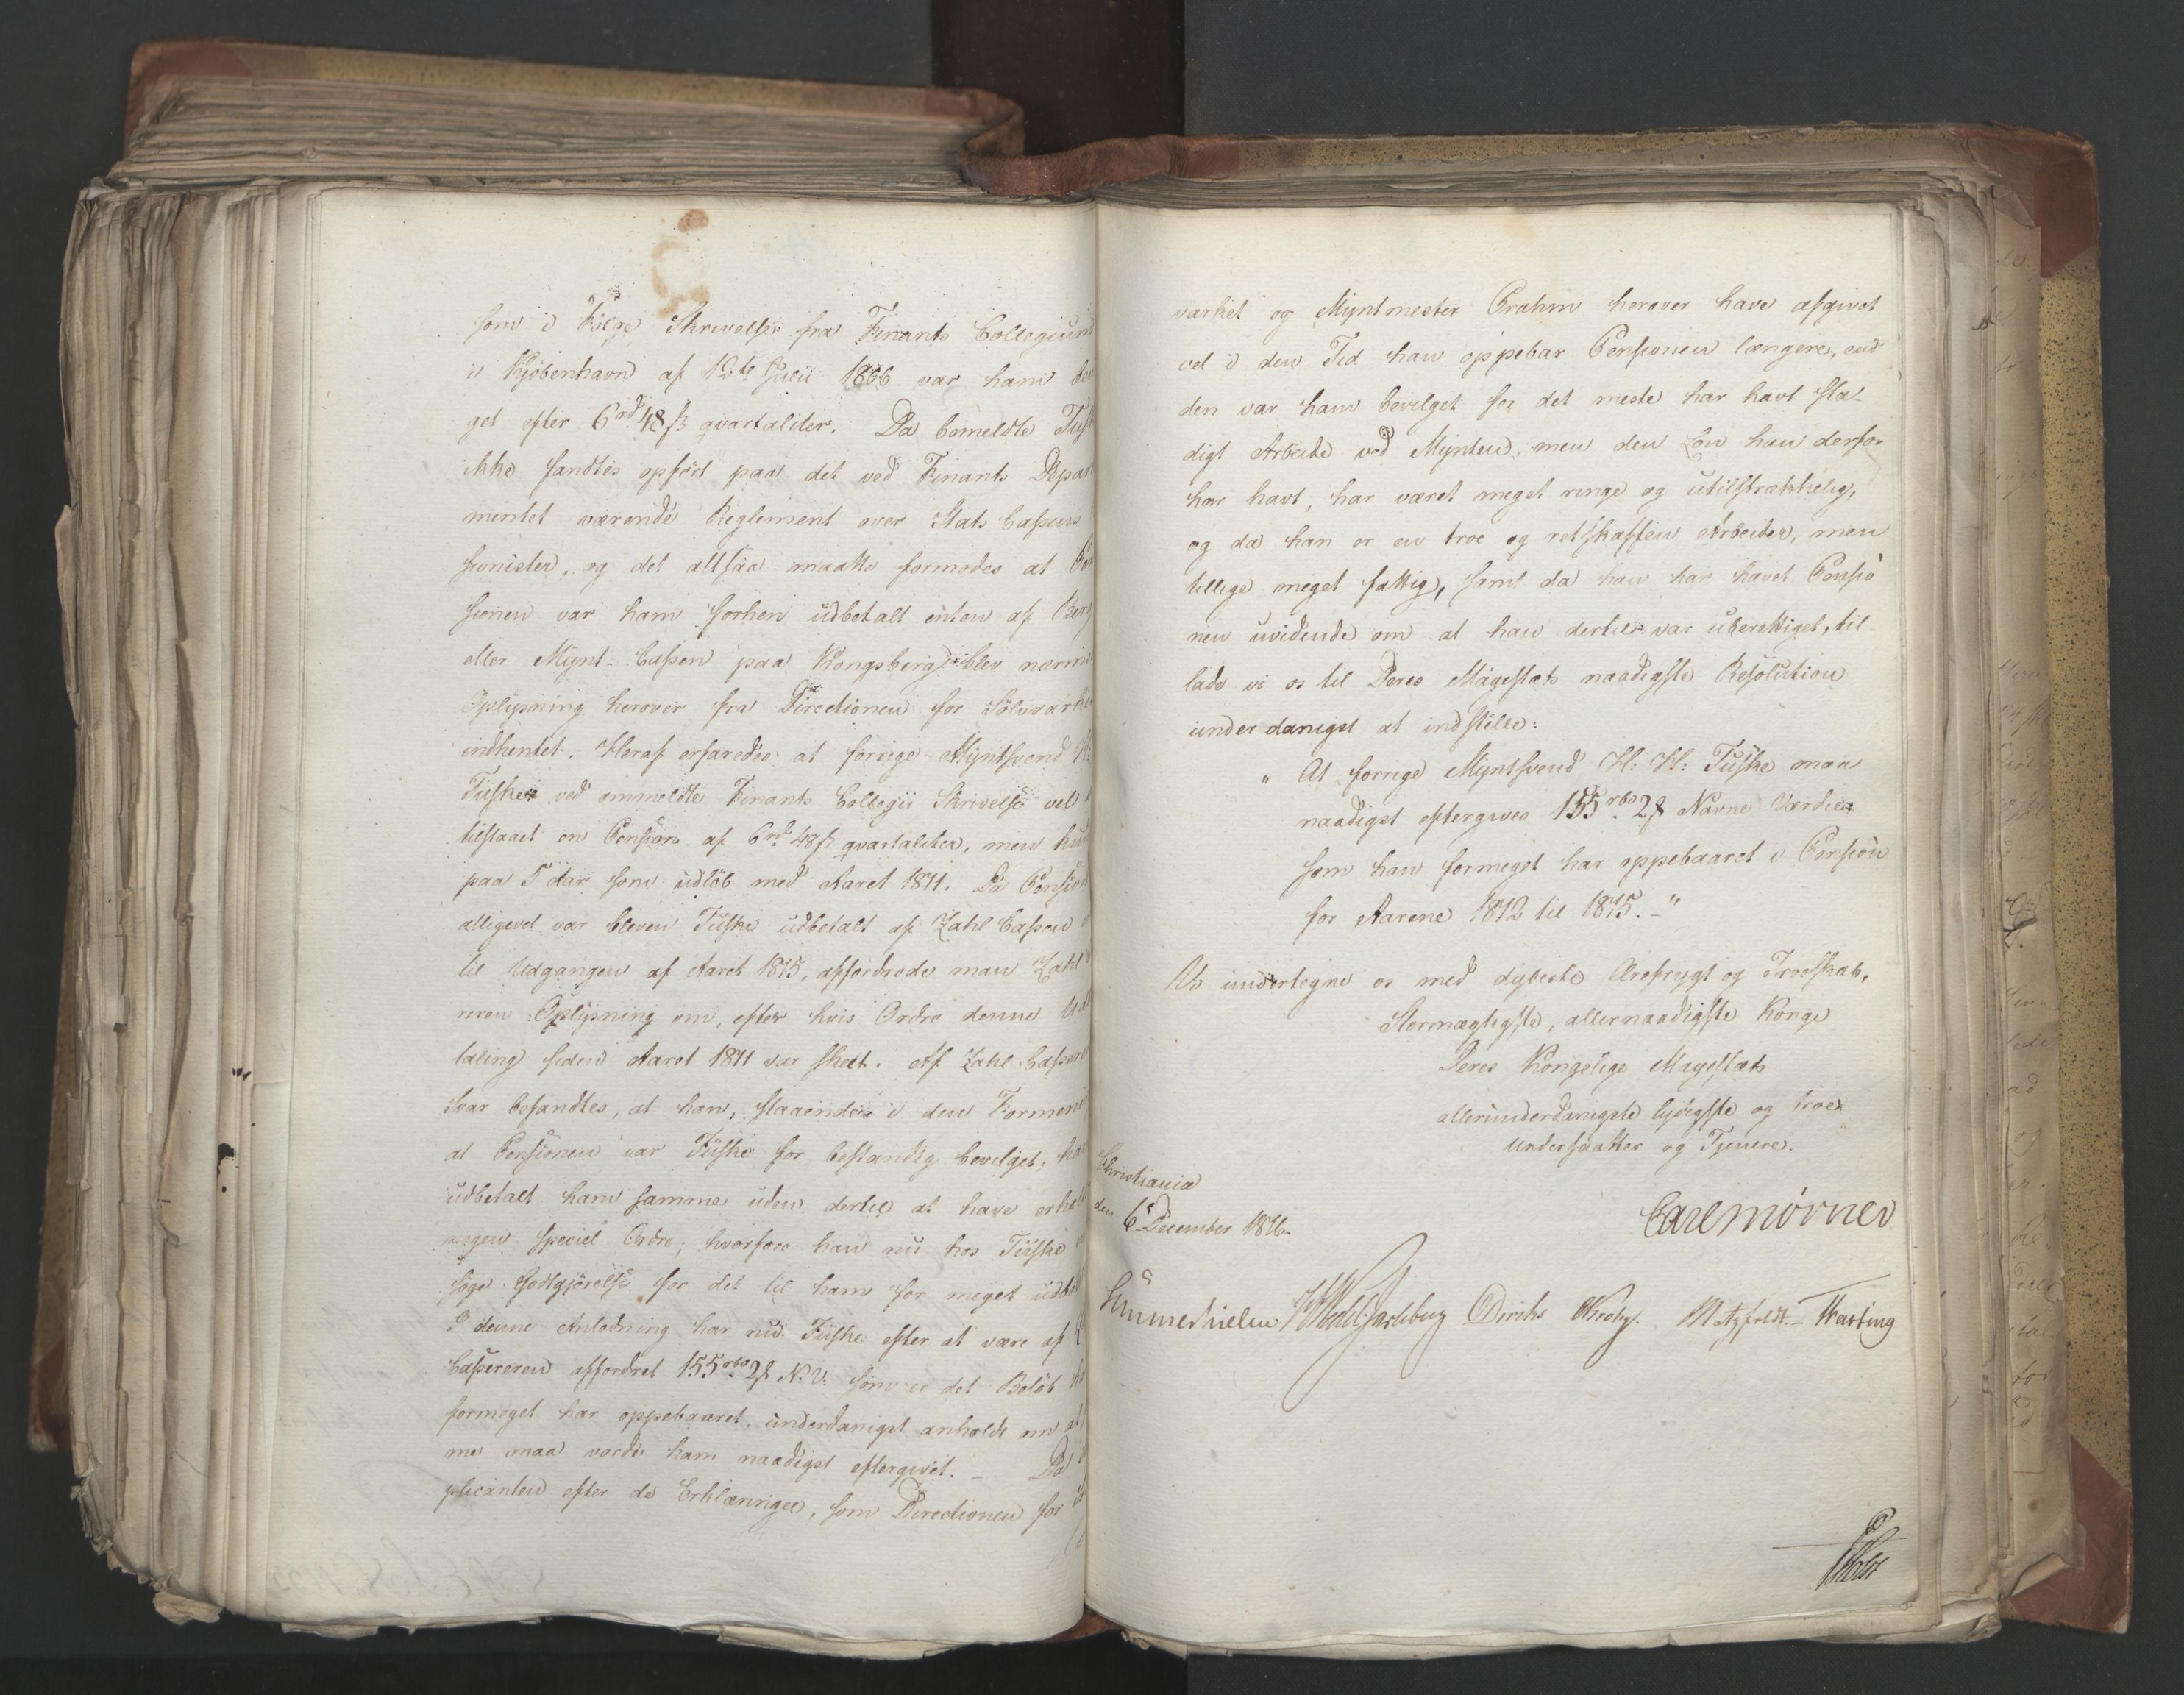 som i Følge Skrivelse fra Finants Collegium
i Kjöbenhavn af 12te Julii 1806 var ham be
get efter 6rd 48 s qvartaliter. Da bemeldte Tus
ikke fandtes opført paa det ved Finants Depar
mentet værende Reglement over Stats Cassens
sionister, og det altsaa maatte formodes at Pen
sionen var ham forhen udbetalt enten af Berg
eller Mynt-Cassen paa Kongsberg, blev nærme
Oplysning herover fra Directionen for Sölvværke
indhentet. Heraf erfaredes at forrige Myntsvend H:
Tuske ved ommeldte Finants Collegii Skrivelse vel
tilstaaet en Pension af 6rd 48 s qvartaliter, men kun
paa 5 Aar som udløb med Aaret 1811. Da Pension
alligevel var bleven Tuske udbetalt af Zahl Cassen
til Udgangen af Aaret 1815, affordrede man Zahl
reren Oplysning om, efter hvis Ordre denne Ud
taling siden Aaret 1811 var skeet. Af Zahl Casserer
Svar befandtes, at han, staaende i den Formeni
at Pensionen var Tuske for bestandig bevilget, ha
udbetalt ham samme uden dertil at have erhol
nogen speciel Ordre; hvorfore han nu hos Tuske
søge Godtgjörelse for det til ham for meget udbe
I denne Anledning har nu Tuske efter at være af Z
Cassereren affordret 155 rbd 2 s N. V. som er det Beløb h
formeget har oppebaaret, underdanigst anholdt om at
me maa vorde ham naadigst eftergivet. - Da
plicanten efter de Erklæringer, som Directionen for
værket og Myntmester Prahm herover have afgivet
vel i den Tid han oppebar Pensionen længere, end
den var ham bevilget for det meste har havt sta-
digt Arbeide ved Mynten, men den Løn han derfor
har havt, har været meget ringe og utilstrækkelig,
og da han er en troe og retskaffen Arbeider, men
tillige meget fattig, samt da han har hævet Pensio
nen uvidende om at han dertil var uberettiget, til-
lade vi os til Deres Majestæts naadigste Resolution
underdanigst at indstille:
"At forrige Myntsvend H: H: Tuske maa
naadigst eftergives 155 rbd 2 s Navne Værdie
som han formeget har oppebaaret i Pension
for Aarene 1812 til 1815. - "
Vi undertegne os med dybeste Ærefrygt og Troeskab,
Stormægtigste, allernaadigste Konge
Deres Kongelige Majestæts
allerunderdanigste lydigste og troe
Undersaatter og Tjenere.
Christiania
den 6 December 1816.
Carl Mörner
Sommerhielm Wedel Jarlsberg Diriks Krohg. Motzfeldt. - Hasting
Holst